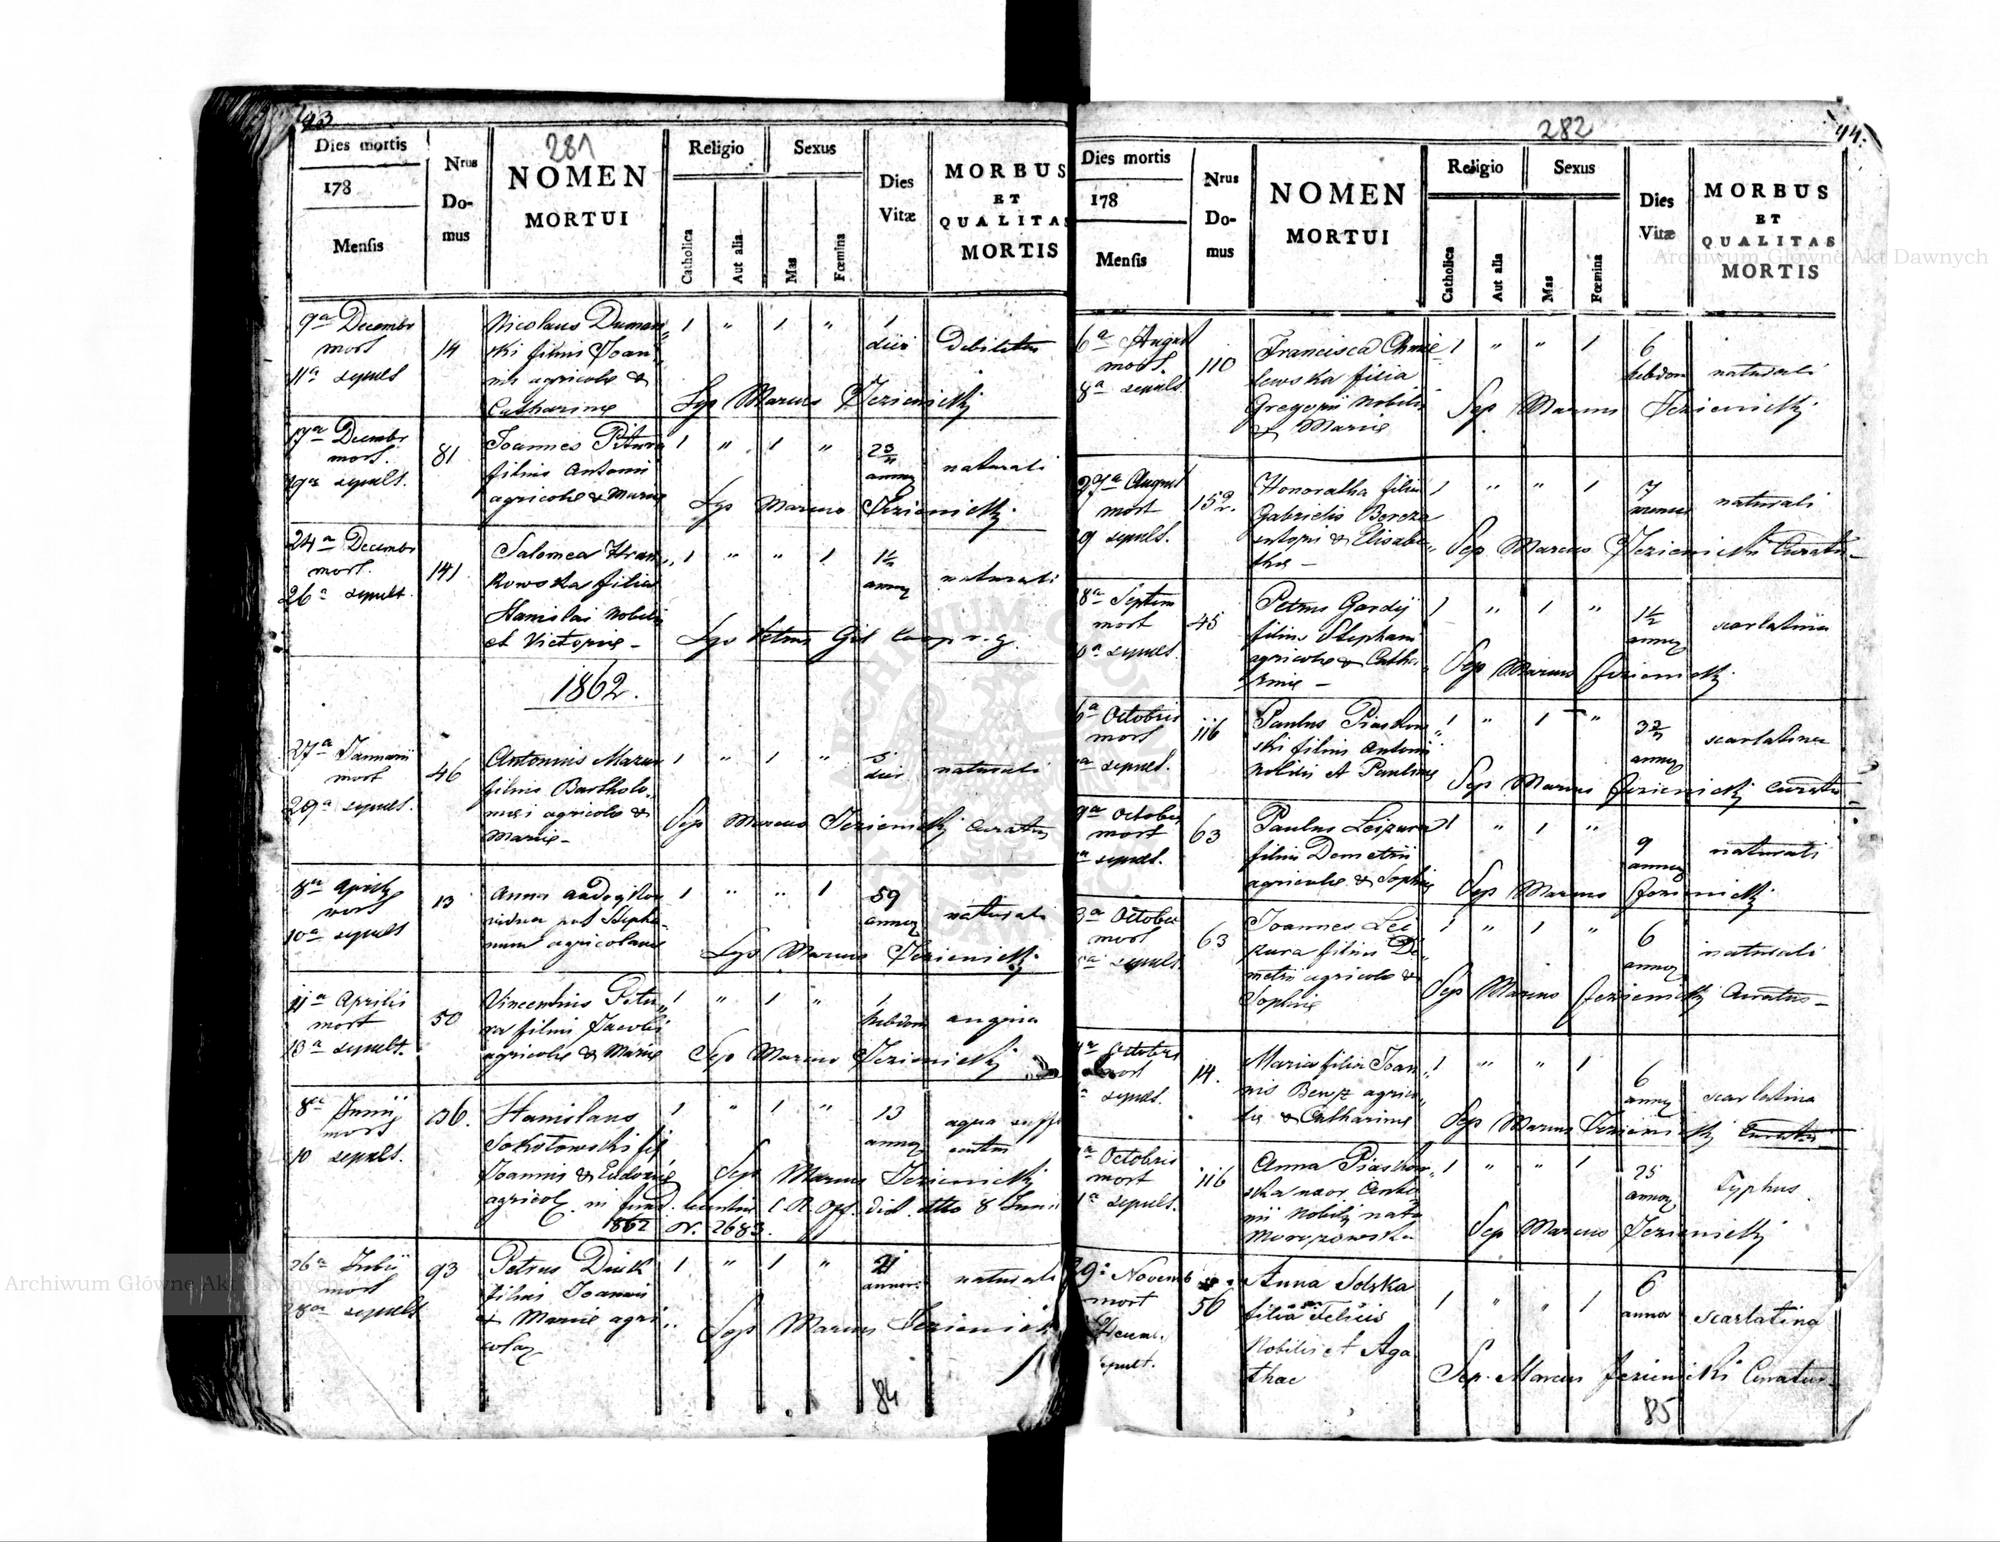 281
Dies mortis
178
Mensis
Nrus
Do-
mus
NOMEN
MORTUI
Religio
Catholica
Aut alia
Sexus
Mas
Fœmina
Dies
Vitæ
MORBUS
ET
QUALITAS
MORTIS
9a Decembr
mort
11a sepult
14
Nicolaus Duman„
ski filius Joan„
nis agricolæ &
Catharinæ
1 „ 1 „
1
diei
Debilitas
Sep Marcus Jezienicki
17a Decembr
mort.
19a sepult.
81
Joannes Pitura
filius Antonii
agricolæ & Mariæ
1 „ 1 „
annor
naturali
Sep Marcus Jezienicki
24a Decembr
mort.
26a sepult
141
Salomea
kowska filia
Stanislai Nobilis
et Victoriæ –
1 „ „ 1
1½
annor
naturali
Sep Petrus Gil Coop r. g.
1862.
27a Januarii
mort
29a sepult.
46
Antonius Mazur
filius Bartholo„
mæi agricolæ &
Mariæ –
1 „ 1 „
5
dier
naturali
Sep Marcus Jezienicki Curatus
8a Aprilis
mort
10a sepult
13
Anna
vidua post Stepha„
num agricolam
1 „ „ 1
59
annor
naturali
Sep Marcus Jezienicki
11a Aprilis
mort
13a sepult.
50
Vincentius Pitu„
ra filius Jacobi
agricolæ & Mariæ
1 „ 1 „
1
hebdom
angina
Sep Marcus Jezienicki
8a Junij
mort
10 sepult.
136.
Stanislaus
Sokołowski fil
Joannis & Eudoxiæ
agricol.
1 „ 1 „
13
annor
aqua suffo
catus
Sep Marcus Jezienicki
did. dtto 8 Junii
1862 Nr. 2683.
26a Julii
mort
28a sepult
93
Petrus Diuk
filius Joannis
& Mariæ agri„
colar
1 „ 1 „
21
annor.
naturali
Sep Marcus Jezienicki
84
282
44.
Dies mortis
178
Mensis
Nrus
Do-
mus
NOMEN
MORTUI
Religio
Catholica
Aut alia
Sexus
Mas
Fœmina
Dies
Vitæ
MORBUS
ET
QUALITAS
MORTIS
6a August
mort.
8a sepult
110
Francisca Chmie„
lewska filia
Gregorii Nobilis
& Mariæ
1 „ „ 1
6
hebdom
naturali
Sep Marcus Jezienicki
27a August
mort
29 sepult.
152.
Honoratha filia
Gabrielis Bereza
& Elisabe„
thæ –
1 „ „ 1
7
naturali
Sep Marcus Jezienicki Curatus –
8a Septem
mort
10a sepult.
45
Petrus Gardij
filius Stephani
agricolæ & Catha„
rinæ –
1 „ 1 „
1½
annor
scarlatina
Sep Marcus Jezienicki
6a Octobris
mort
sepult.
116
Paulus Piaskow„
ski filius Antonii
Nobilis et Paulinæ
1 „ 1 „
annor
scarlatina
Sep Marcus Jezienicki Curatus
9a Octobris
mort
sepult.
63
Paulus Leizura
filius Demetrii
agricolæ & Sophiæ
1 „ 1 „
9
annor
naturali
Sep Marcus Jezienicki
3a Octobris
mort
sepult.
63
Joannes Lei„
zura filius De„
metrii agricolæ &
Sophiæ
1 „ 1 „
6
annor
naturali
Sep Marcus Jezienicki Curatus –
Octobris
mort
sepult.
14.
Maria filia Joan„
nis agrico„
læ & Catharinæ
1 „ „ 1
6
annor
scarlatina
Sep Marcus Jezienicki Curatus
Octobris
mort
sepult.
116
Anna Piaskow„
ska uxor Anto„
nii Nobilis nata
Morozowska
1 „ „ 1
25
annor
Typhus.
Sep Marcus Jezienicki
29a Novemb
mort
sepult.
56
Anna Solska
filia Felicis
Nobilis et Aga
thae
1 „ „ 1
6
annor
scarlatina
Sep. Marcus Jezienicki Curatus
85
Archiwum Główne Akt Dawnych
Archiwum Główne Akt Dawnych
ARCHIWUM GŁÓWNE AKT DAWNYCH